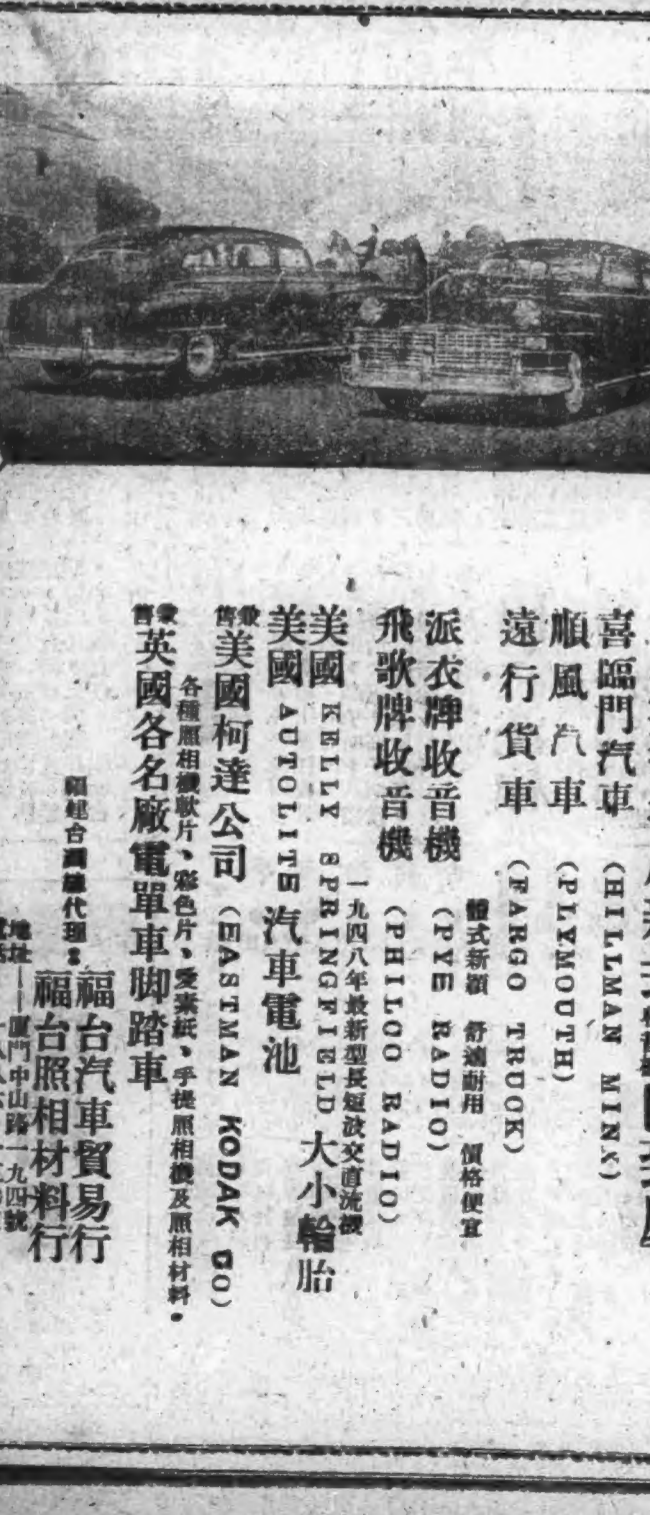 喜臨門汽車 (HILLMAN MINX)
順風汽車 (PLYMOUTH)
遠行貨車 (FARGO TRUCK)
體式新穎 舒適耐用 價格便宜
派衣牌收音機 (PYE RADIO)
飛歌牌收音機 (PHILCO RADIO)
一九四八年最新型長短波交直流機
美國 KELLY SPRINGFIELD 大小輪胎
美國 AUTOLITE 汽車電池
兼售美國柯達公司 (EASTMAN KODAK CO)
各種照相機軟片、彩色片、愛素紙、手提照相機及照相材料。
兼售英國各名廠電單車脚踏車
代理：
福台汽車貿易行
福台照相材料行
地址——廈門中山路一九四號